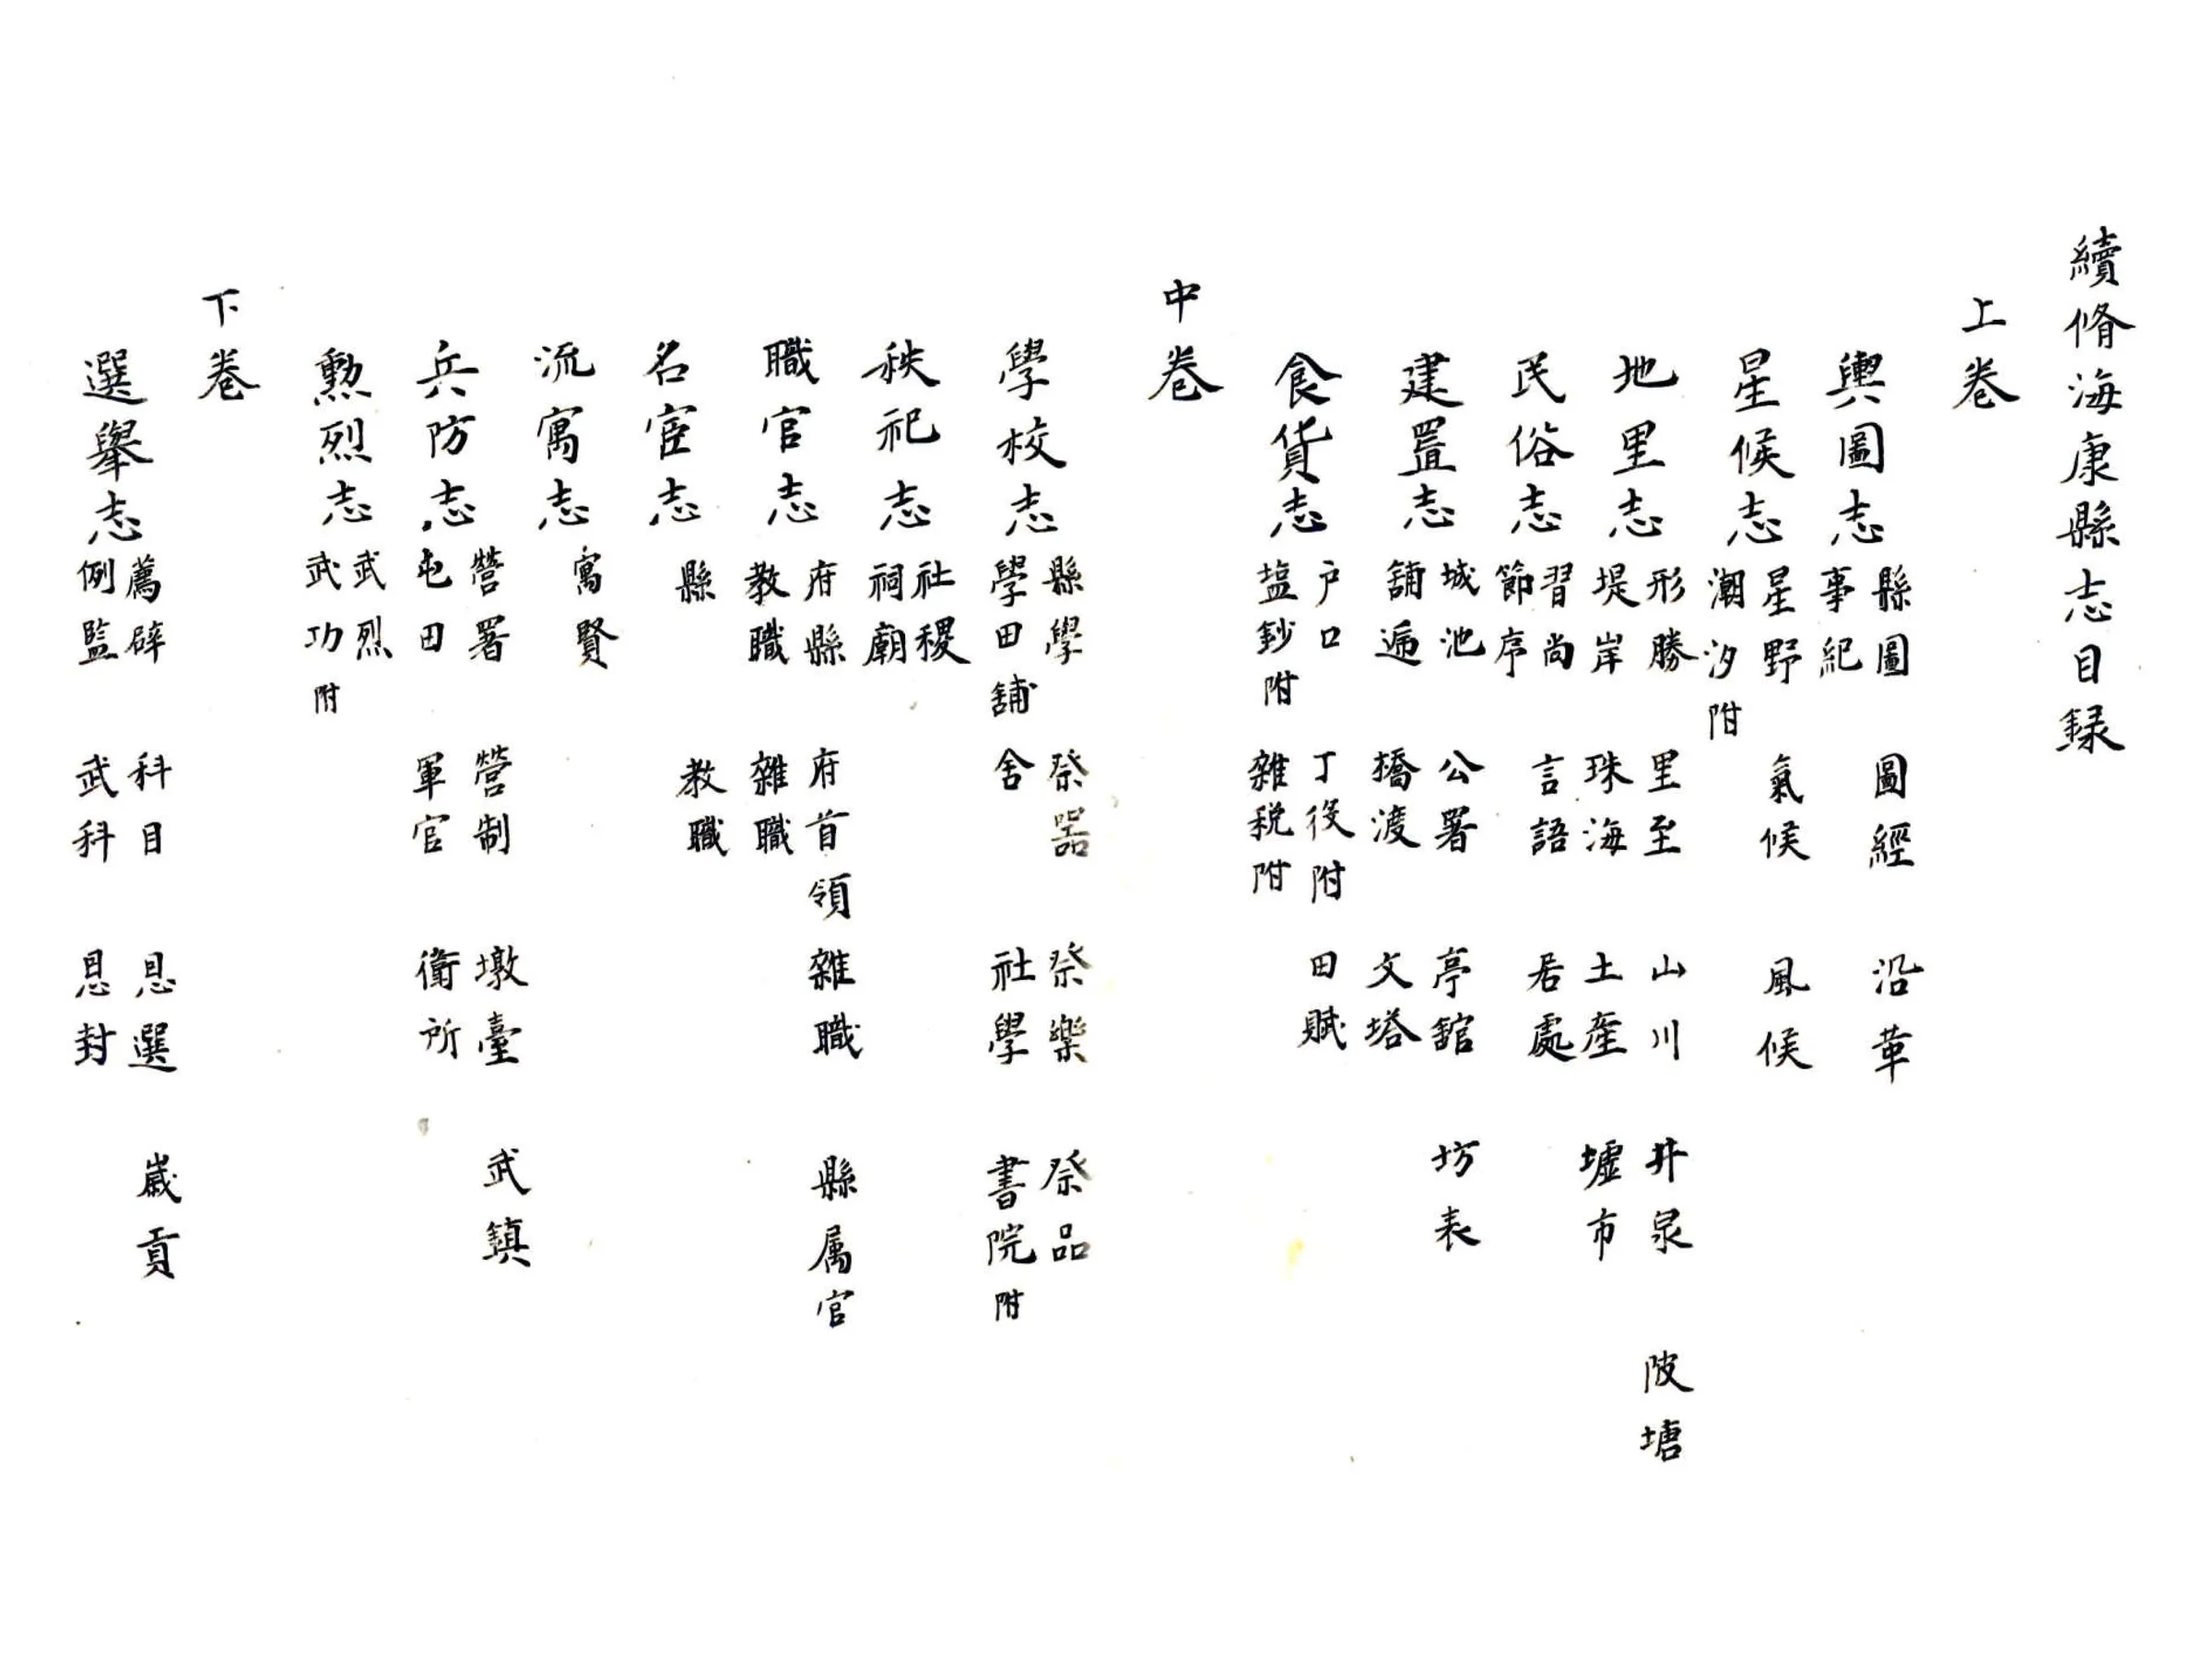 續脩海康縣志目録
上卷
輿圖志 縣圖 圖經 沿革
事紀
星候志 星野 氣候 風候
潮汐附
地里志 形勝 里至 山川 井泉 陂塘
堤岸 珠海 土產 墟市
民俗志 習尚 言語 居處
節序
建置志 城池 公署 亭舘 坊表
舖遞 橋渡 文塔
食貨志 户口 丁役附 田賦
塩鈔附 雜稅附
中卷
學校志 縣學 祭器 祭樂 祭品
學田舖 舍 社學 書院附
秩祀志 社稷
祠廟
職官志 府縣 府首領 雜職 縣属官
教職 雜職
名宦志 縣 教職
流寓志 寓賢
兵防志 營署 營制 墩臺 武鎮
屯田 軍官 衛所
勲烈志 武烈
武功附
下卷
選舉志 薦辟 科目 恩選 歲貢
例監 武科 恩封